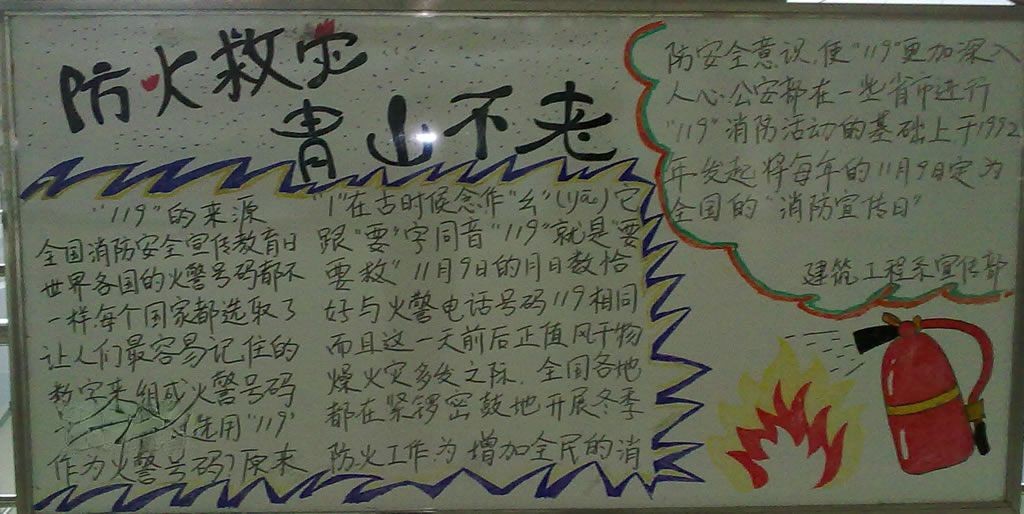 防火救灾
青山不老
"119"的来源
全国消防安全宣传教育日
世界各国的火警号码都不
一样,每个国家都选取了
让人们最容易记住的
数字来组成火警号码
选用"119"
作为火警号码?原来
"1"在古时候念作"幺"(yāo)它
跟"要"字同音"119"就是"要
要救"11月9日的月日数恰
好与火警电话号码119相同
而且这一天前后正值风干物
燥火灾多发之际,全国各地
都在紧锣密鼓地开展冬季
防火工作为增加全民的消
防安全意识,使"119"更加深入
人心.公安部在一些省市进行
"119"消防活动的基础上于1992
年发起将每年的11月9日定为
全国的"消防宣传日"
建筑工程系宣传部